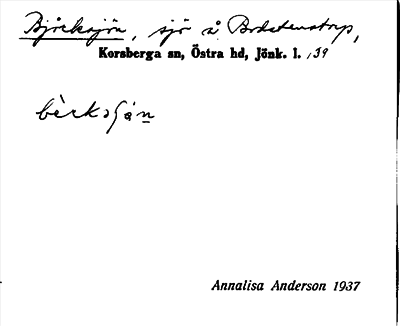 Björksjön, sjö å Brdstenstorp,
Korsberga sn, Östra hd, Jönk. l. 139
bèrksʃán
Annalisa Anderson 1937